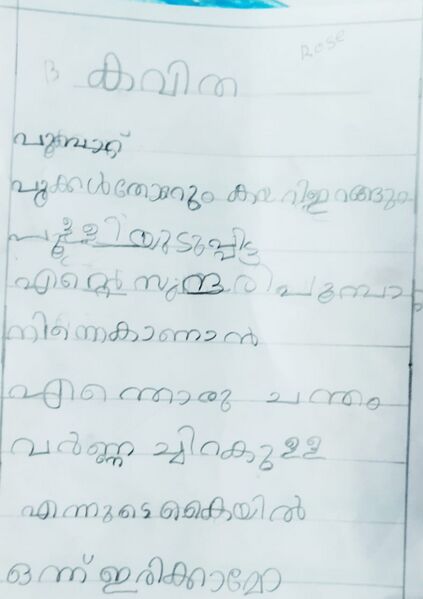 Rose
B കവിത
പൂമ്പാറ്റ്
പൂക്കൾതോറും കയറിഇറങ്ങും
പുള്ളിയുടുപ്പിട്ട
എന്റെ സുന്ദരി പൂമ്പാ
നിന്നെകാണാൻ
എന്തൊരു ചന്തം
വർണ്ണ ച്ചിറകുള്ള
എന്നുടെകൈയിൽ
ഒന്ന് ഇരിക്കാമോ